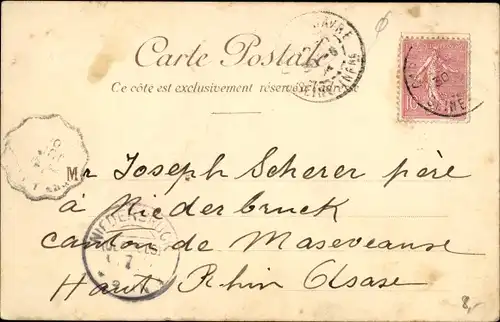 Carte Postale
Ce côté est exclusivement réservé
HAVRE
10
Mr Joseph Scherer père
à Niederbruck
canton de Maseveause
Haut Rhin Alsase
NIEDERBRUCK
8,-